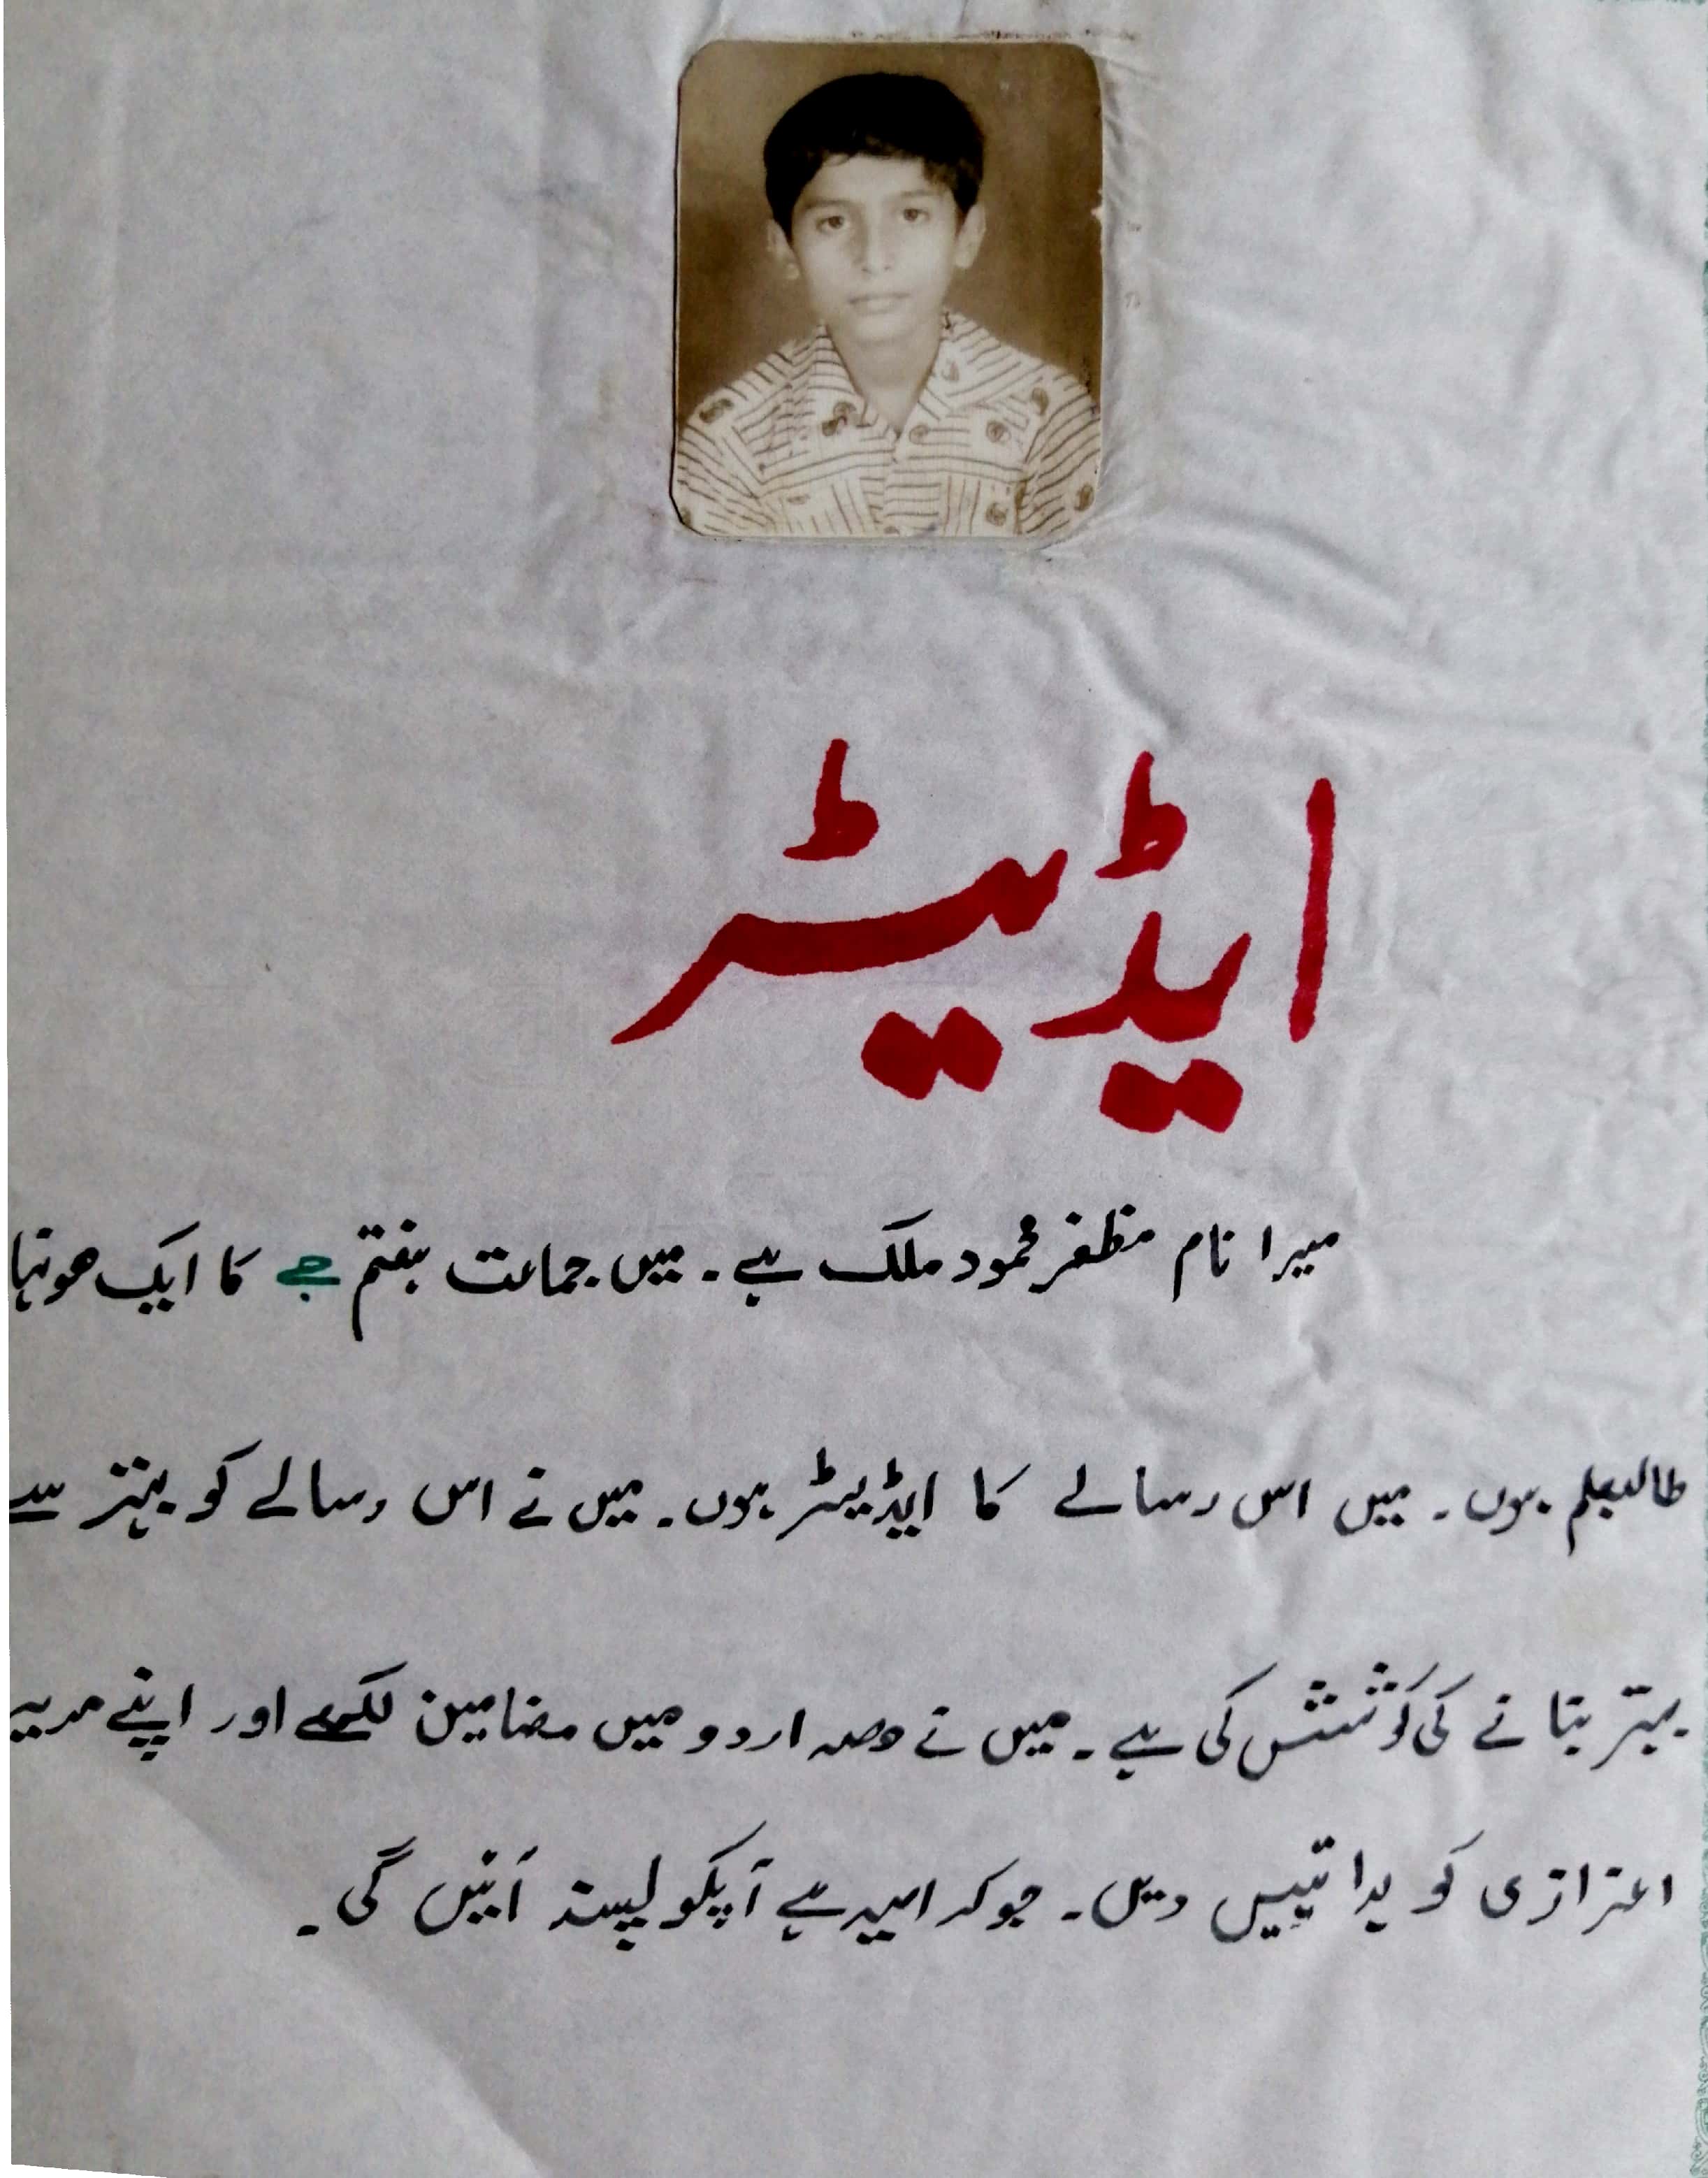 ایڈیٹر
میرا نام مظفر محمود ملک ہے۔ میں جماعت ہفتم جے کا ایک ھونہا
طالبعلم ہوں۔ میں اس رسالے کا ایڈیٹر ہوں۔ میں نے اس رسالے کو بہتر سے
بہتر بنانے کی کوشش کی ہے۔ میں نے حصہ اردو میں مضامین لکھے اور اپنے مدیر
اعزازی کو ہدایتیں دیں۔ جوکہ امید ہے آپکو پسند آئیں گی۔